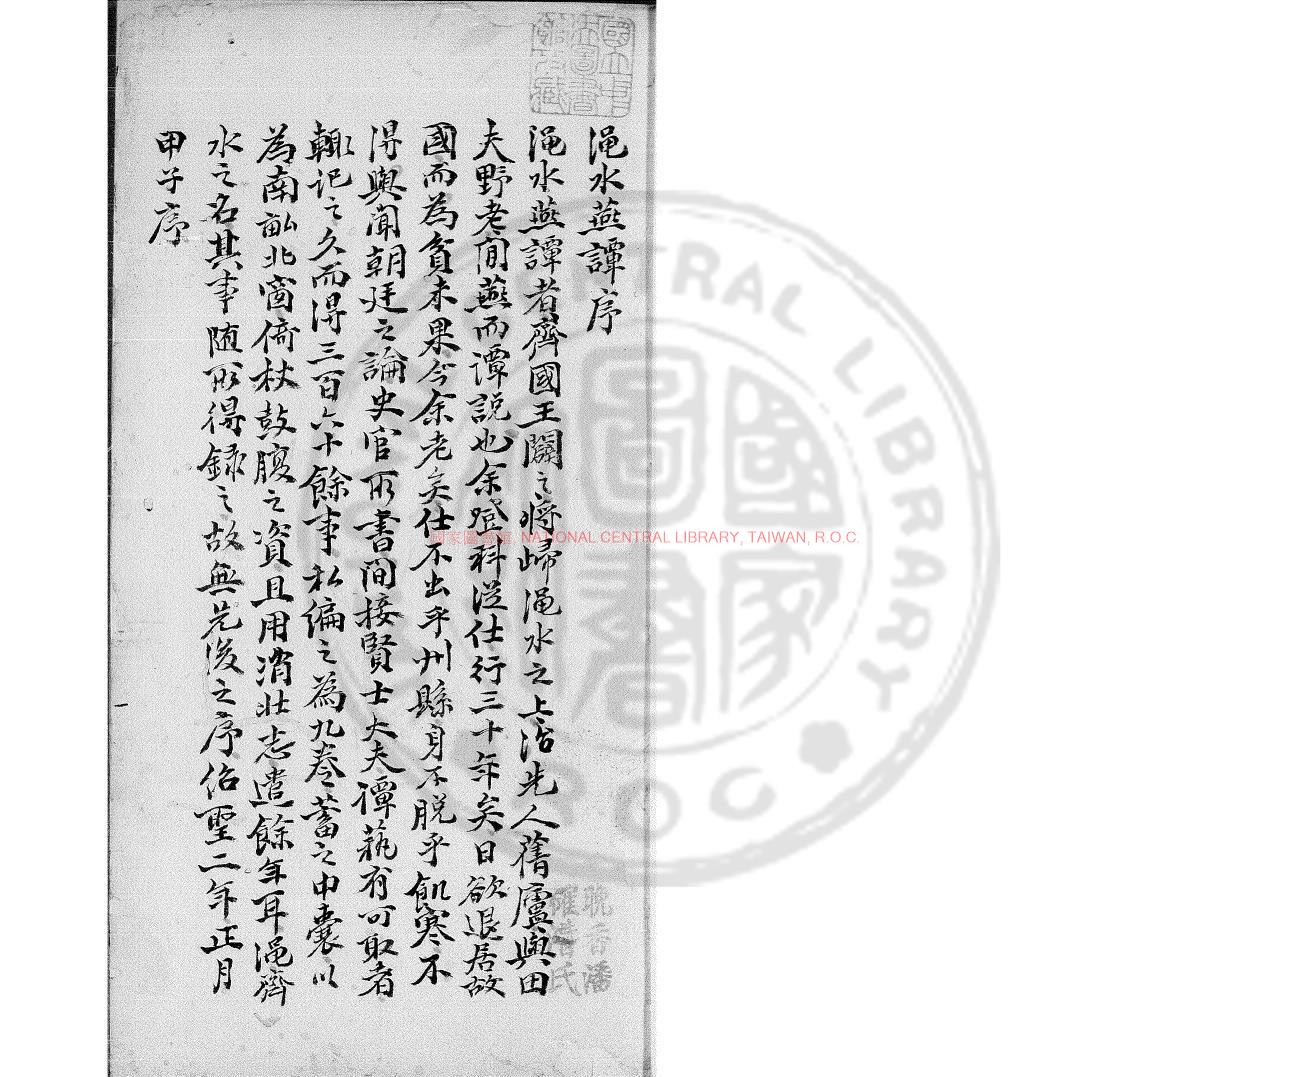 澠水燕譚序
澠水燕譚者齊國王闢之將歸澠水之上治先人舊廬與田
夫野老閒燕而譚說也余登科從仕行三十年矣日欲退居故
國而為貧未果今余老矣仕不出乎州縣身不脫乎飢寒不
得與聞朝廷之論史官所書間接賢士大夫譚議有可取者
輒記之久而得三百六十餘事私編之為九卷蓄之中囊以
為南畝北窗倚杖鼓腹之資且用消壯志遣餘年耳澠齊
水之名其事随所得録之故無先後之序紹聖二年正月
甲子序
國立中央圖書館收藏
國家圖書館, NATIONAL CENTRAL LIBRARY, TAIWAN, R.O.C.
CENTRAL LIBRARY
R.O.C
國家圖書